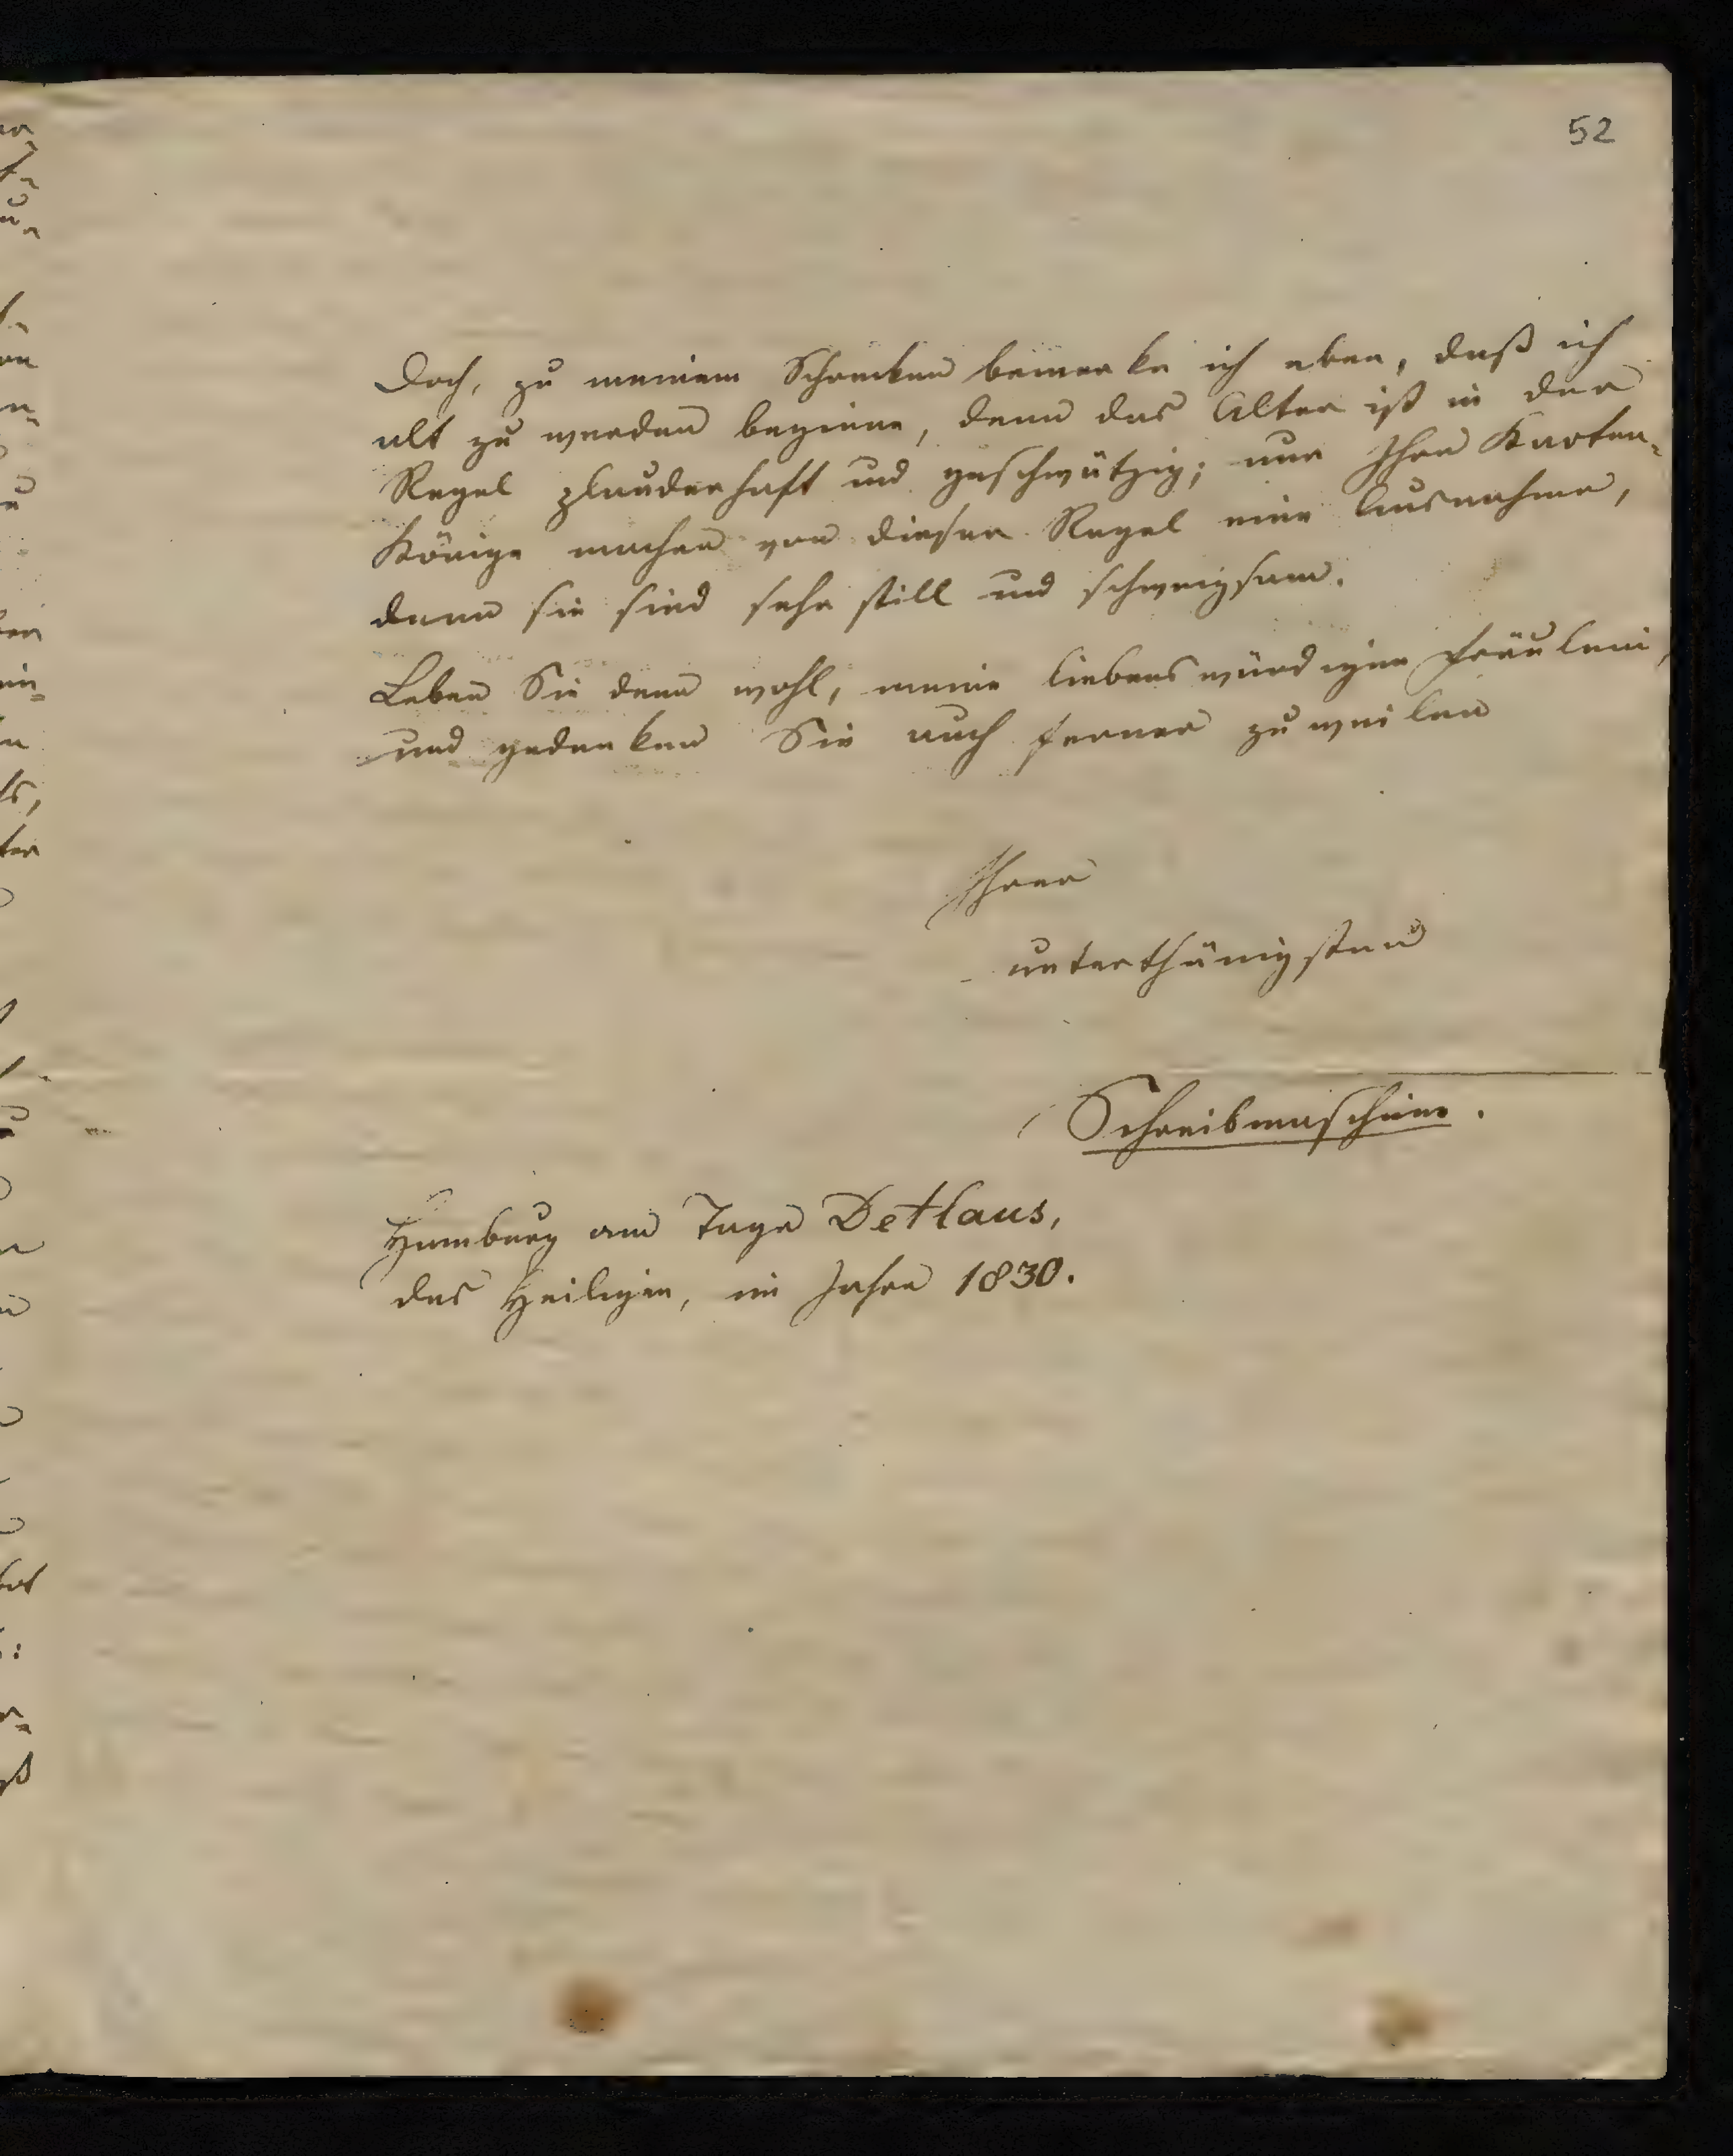 52
Doch, zu meinem Schrecken bemerke ich eben, daß ich
alt zu werden beginne, denn das Alter ist in der
Regel plauderhaft und geschwätzig; nur Ihre Karten-
Könige machen von dieser Regel eine Ausnahme,
denn sie sind sehr still und schweigsam.
Leben Sie denn wohl, meine liebenswürdigen Fräulein,
und gedenken Sie auch ferner zuweilen
Ihrer
unterthänigsten
Schreibmaschine.
Hamburg am Tage Detlaus,
des Heiligen, im Jahre 1830.